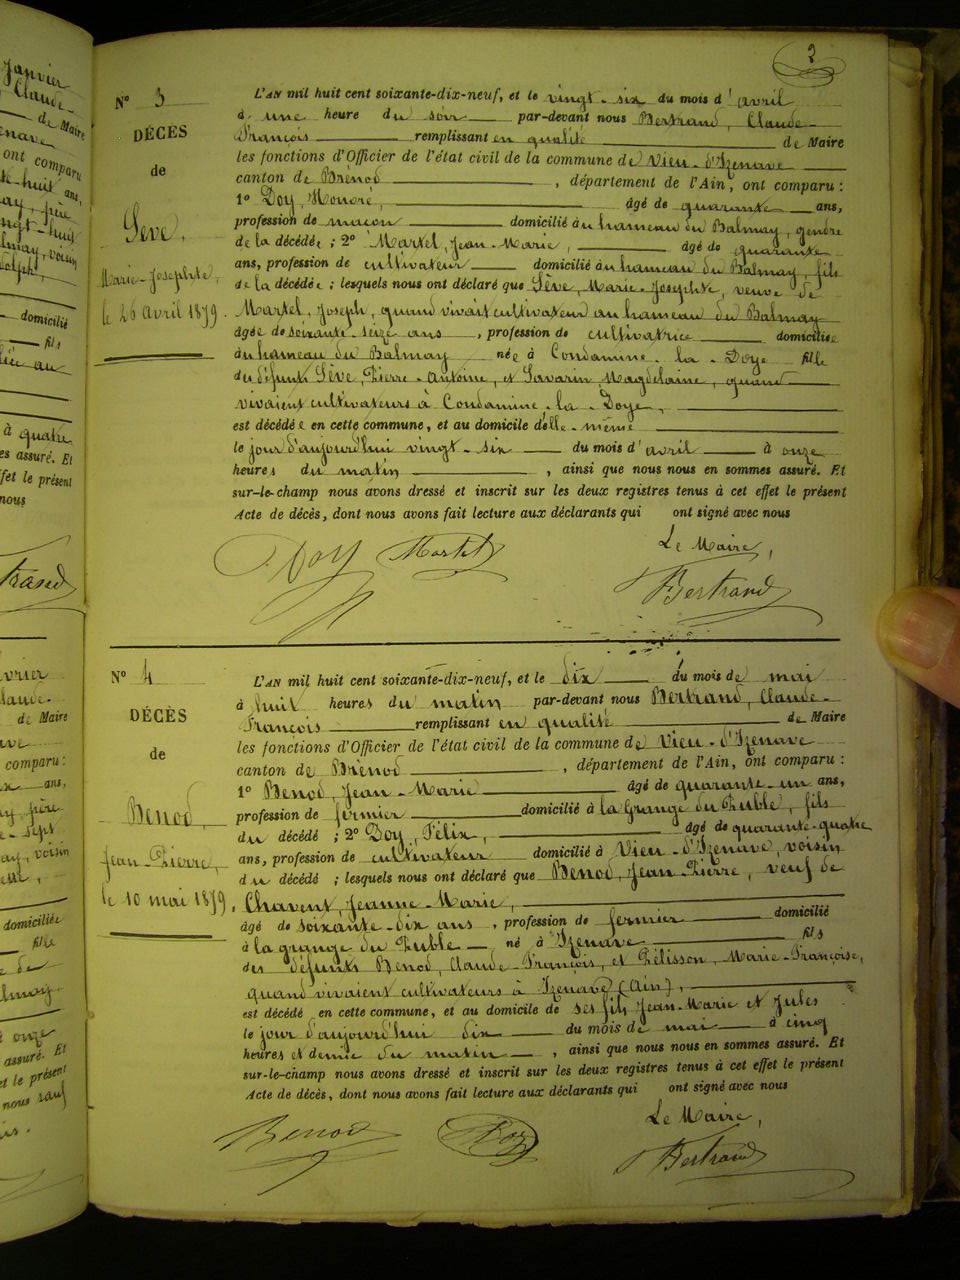 3
N° 3
DÉCÈS
de
Sève,
Marie-Josephte,
le 26 avril 1879.
L'AN mil huit cent soixante-dix-neuf, et le vingt-six du mois d'avril
à une heure du soir par-devant nous Bertrand, Claude-
François remplissant en qualité de Maire
les fonctions d'Officier de l'état civil de la commune de Vieu-d'Izenave
canton de Brénod, département de l'Ain, ont comparu :
1° Doy, Honoré, âgé de quarante ans,
profession de maçon domicilié au hameau du Balmay, gendre
de la décédée ; 2° Martel, Jean-Marie, âgé de quarante
ans, profession de cultivateur domicilié au hameau du Balmay, fils
de la décédée ; lesquels nous ont déclaré que Sève, Marie-Josephte, veuve de
Martel, Joseph, quand vivait cultivateur au hameau du Balmay
âgée de soixante-seize ans, profession de cultivatrice domiciliée
au hameau du Balmay née à Condamine-la-Doye fille
des défunts Sève, Pierre-Antoine, et Savarin, Magdelaine, quand
vivaient cultivateurs à Condamine-la-Doye,
est décédée en cette commune, et au domicile d'elle-même
le jour d'aujourd'hui vingt-six du mois d'avril à onze
heures du matin, ainsi que nous nous en sommes assuré. Et
sur-le-champ nous avons dressé et inscrit sur les deux registres tenus à cet effet le présent
Acte de décès, dont nous avons fait lecture aux déclarants qui ont signé avec nous
Le Maire,
Doy Martel Bertrand
N° 4
DÉCÈS
de
Benod,
Jean-Pierre,
le 10 mai 1879.
L'AN mil huit cent soixante-dix-neuf, et le dix du mois de mai
à huit heures du matin par-devant nous Bertrand, Claude-
François remplissant en qualité de Maire
les fonctions d'Officier de l'état civil de la commune de Vieu-d'Izenave
canton de Brénod, département de l'Ain, ont comparu :
1° Benod, Jean-Marie âgé de quarante-un ans,
profession de fermier domicilié à la Grange du Puble, fils
du décédé ; 2° Doy, Félix, âgé de quarante-quatre
ans, profession de cultivateur domicilié à Vieu-d'Izenave, voisin
du décédé ; lesquels nous ont déclaré que Benod, Jean-Pierre, veuf de
Chavent, Jeanne-Marie,
âgé de soixante-dix ans, profession de fermier domicilié
à la grange du Puble né à Izenave fils
des défunts Benod, Claude-François, et Pélisson, Marie-Françoise,
quand vivaient cultivateurs à Izenave (Ain),
est décédé en cette commune, et au domicile de ses fils Jean-Marie et Jules
le jour d'aujourd'hui dix du mois de mai à cinq
heures et demie du matin, ainsi que nous nous en sommes assuré. Et
sur-le-champ nous avons dressé et inscrit sur les deux registres tenus à cet effet le présent
Acte de décès, dont nous avons fait lecture aux déclarants qui ont signé avec nous
Le Maire,
Benod Doy Bertrand